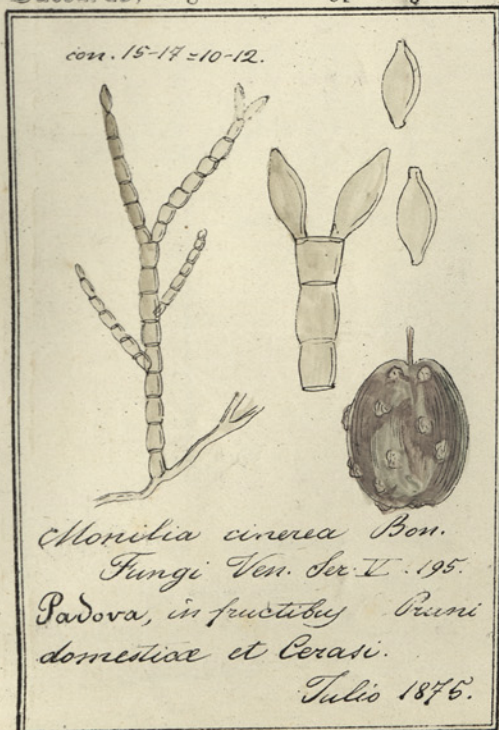 con. 15-17=10-12.
Monilia cinerea Bon.
Fungi Ven. Ser. V. 195.
Padova, in fructibus Pruni
domesticæ et Cerasi.
Julio 1875.